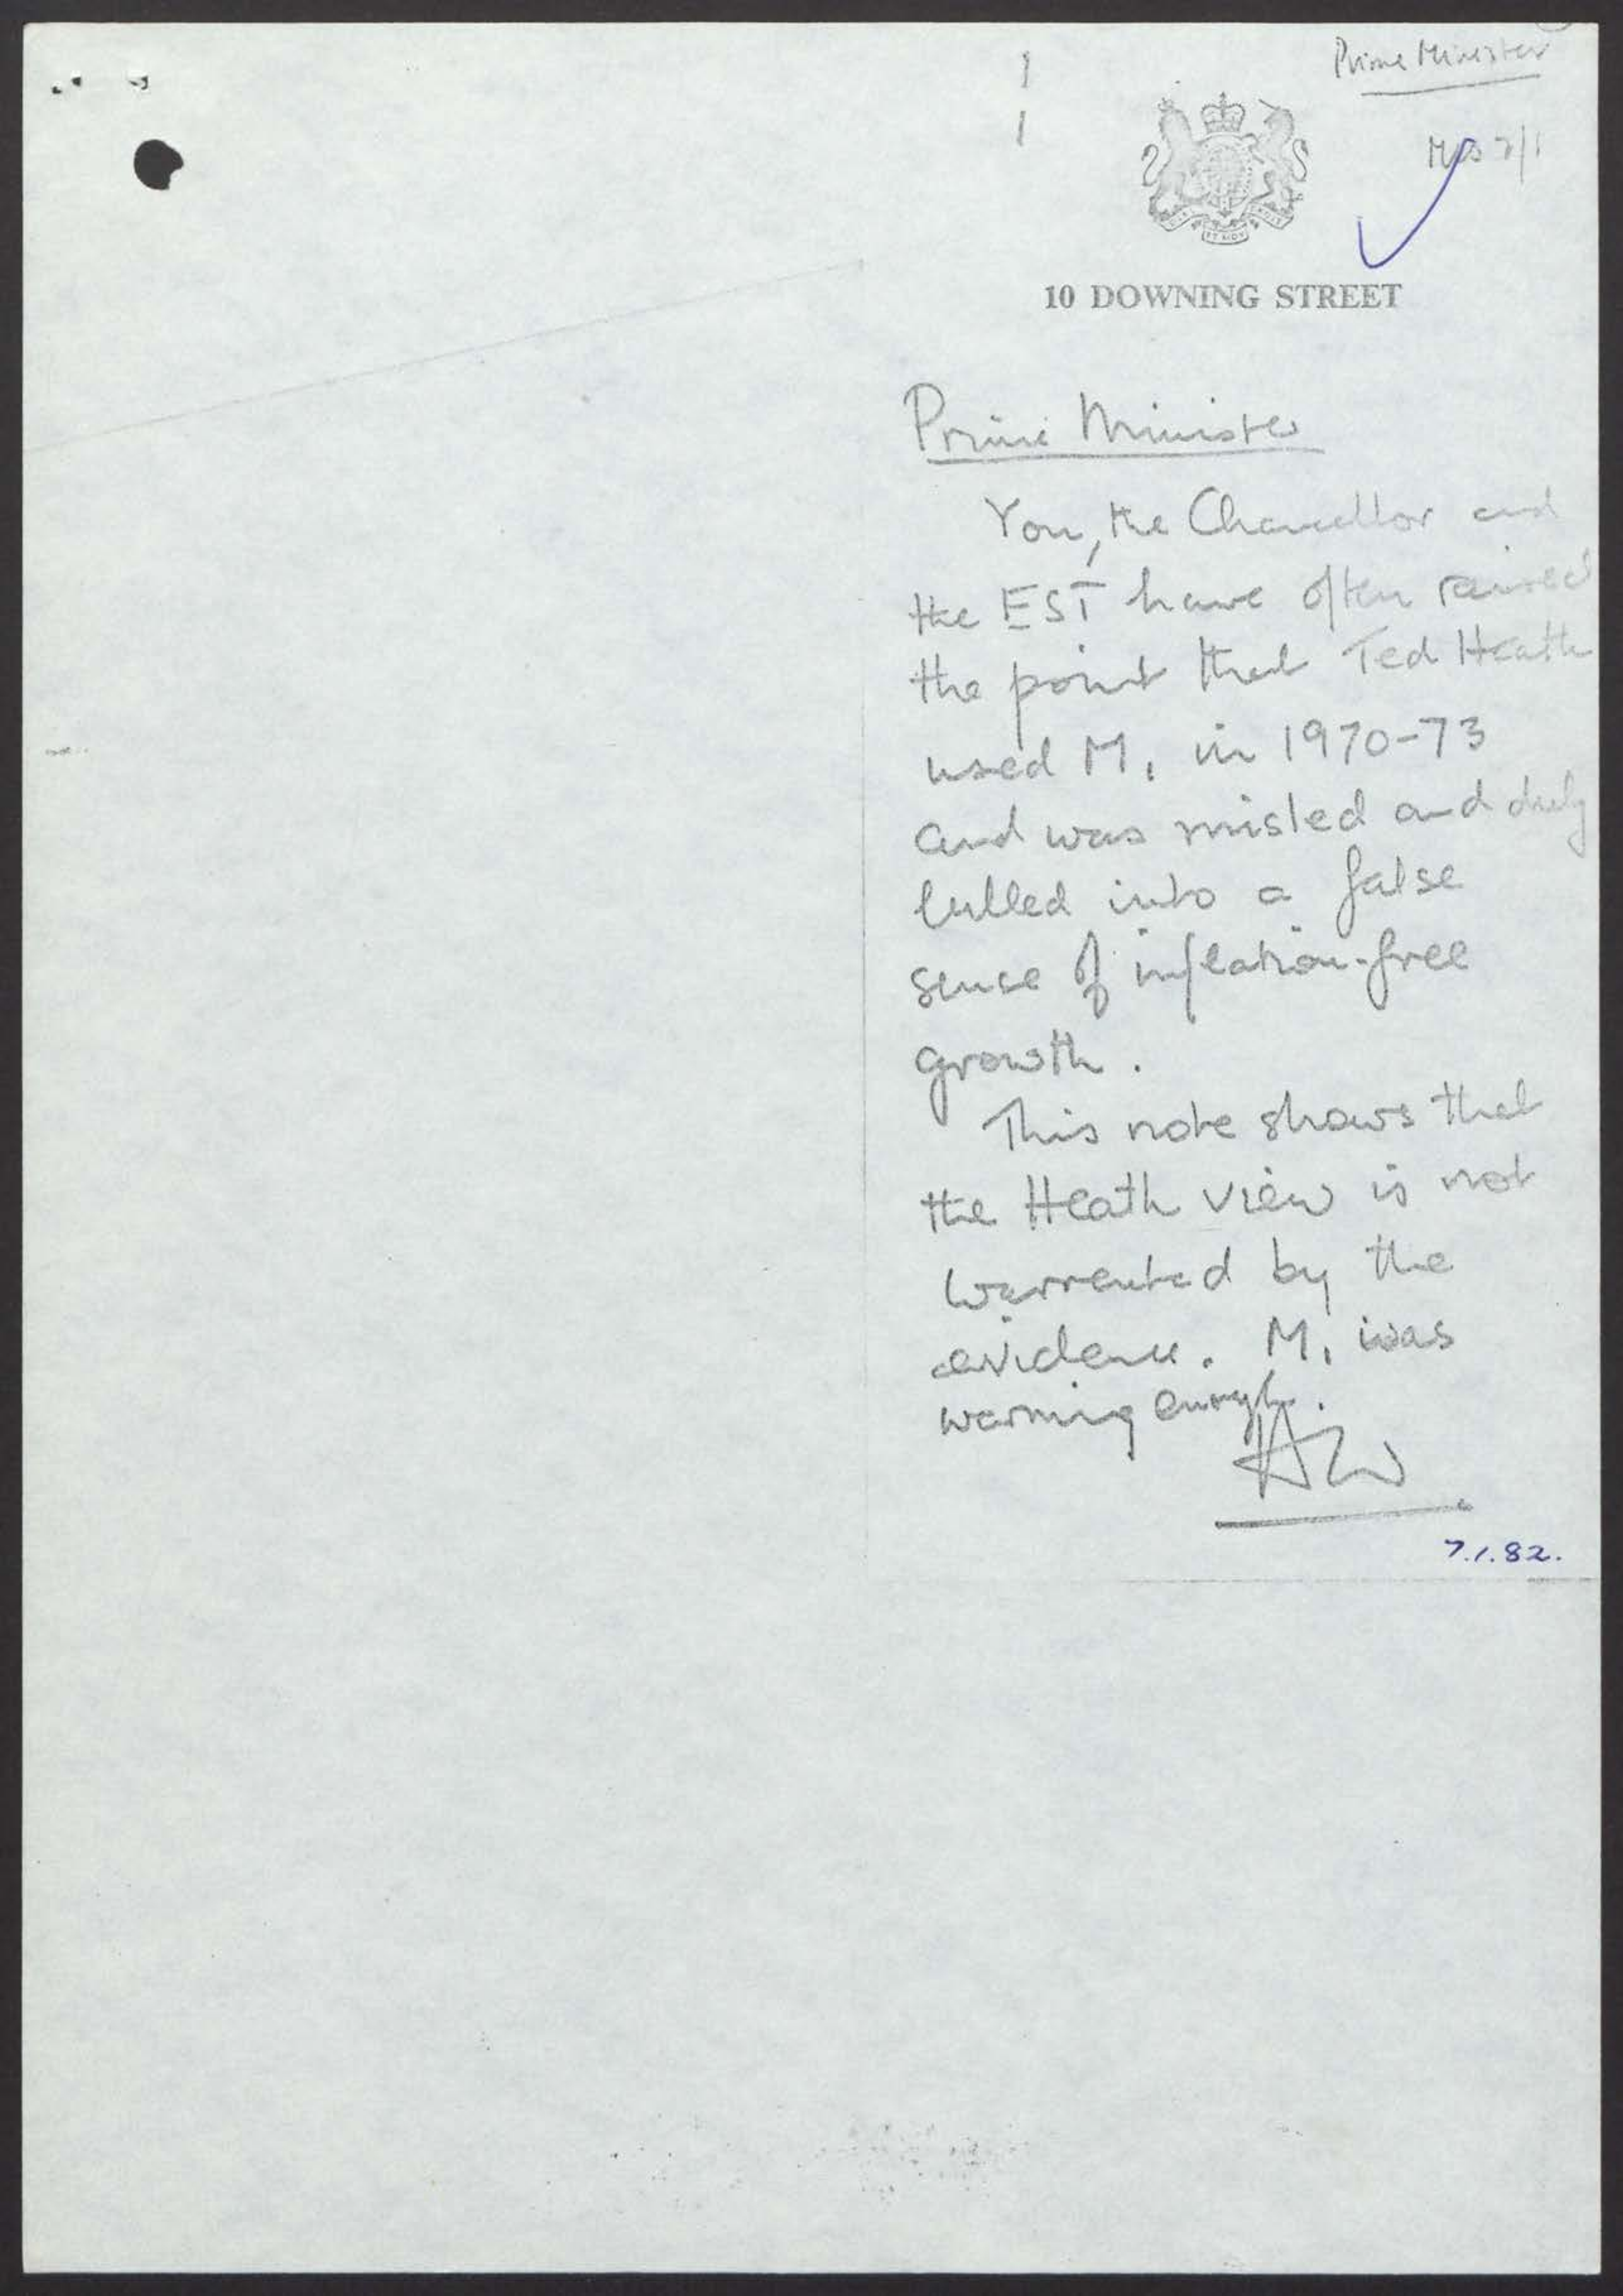 Prime Minister
MCS 7/1
10 DOWNING STREET
Prime Minister
You, the Chancellor and
the EST have often raised
the point that Ted Heath
used M₁ in 1970-73
and was misled and duly
lulled into a false
sense of inflation-free
growth.
This note shows that
the Heath view is not
warrented by the
evidence. M₁ was
warning enough.
AW
7.1.82.